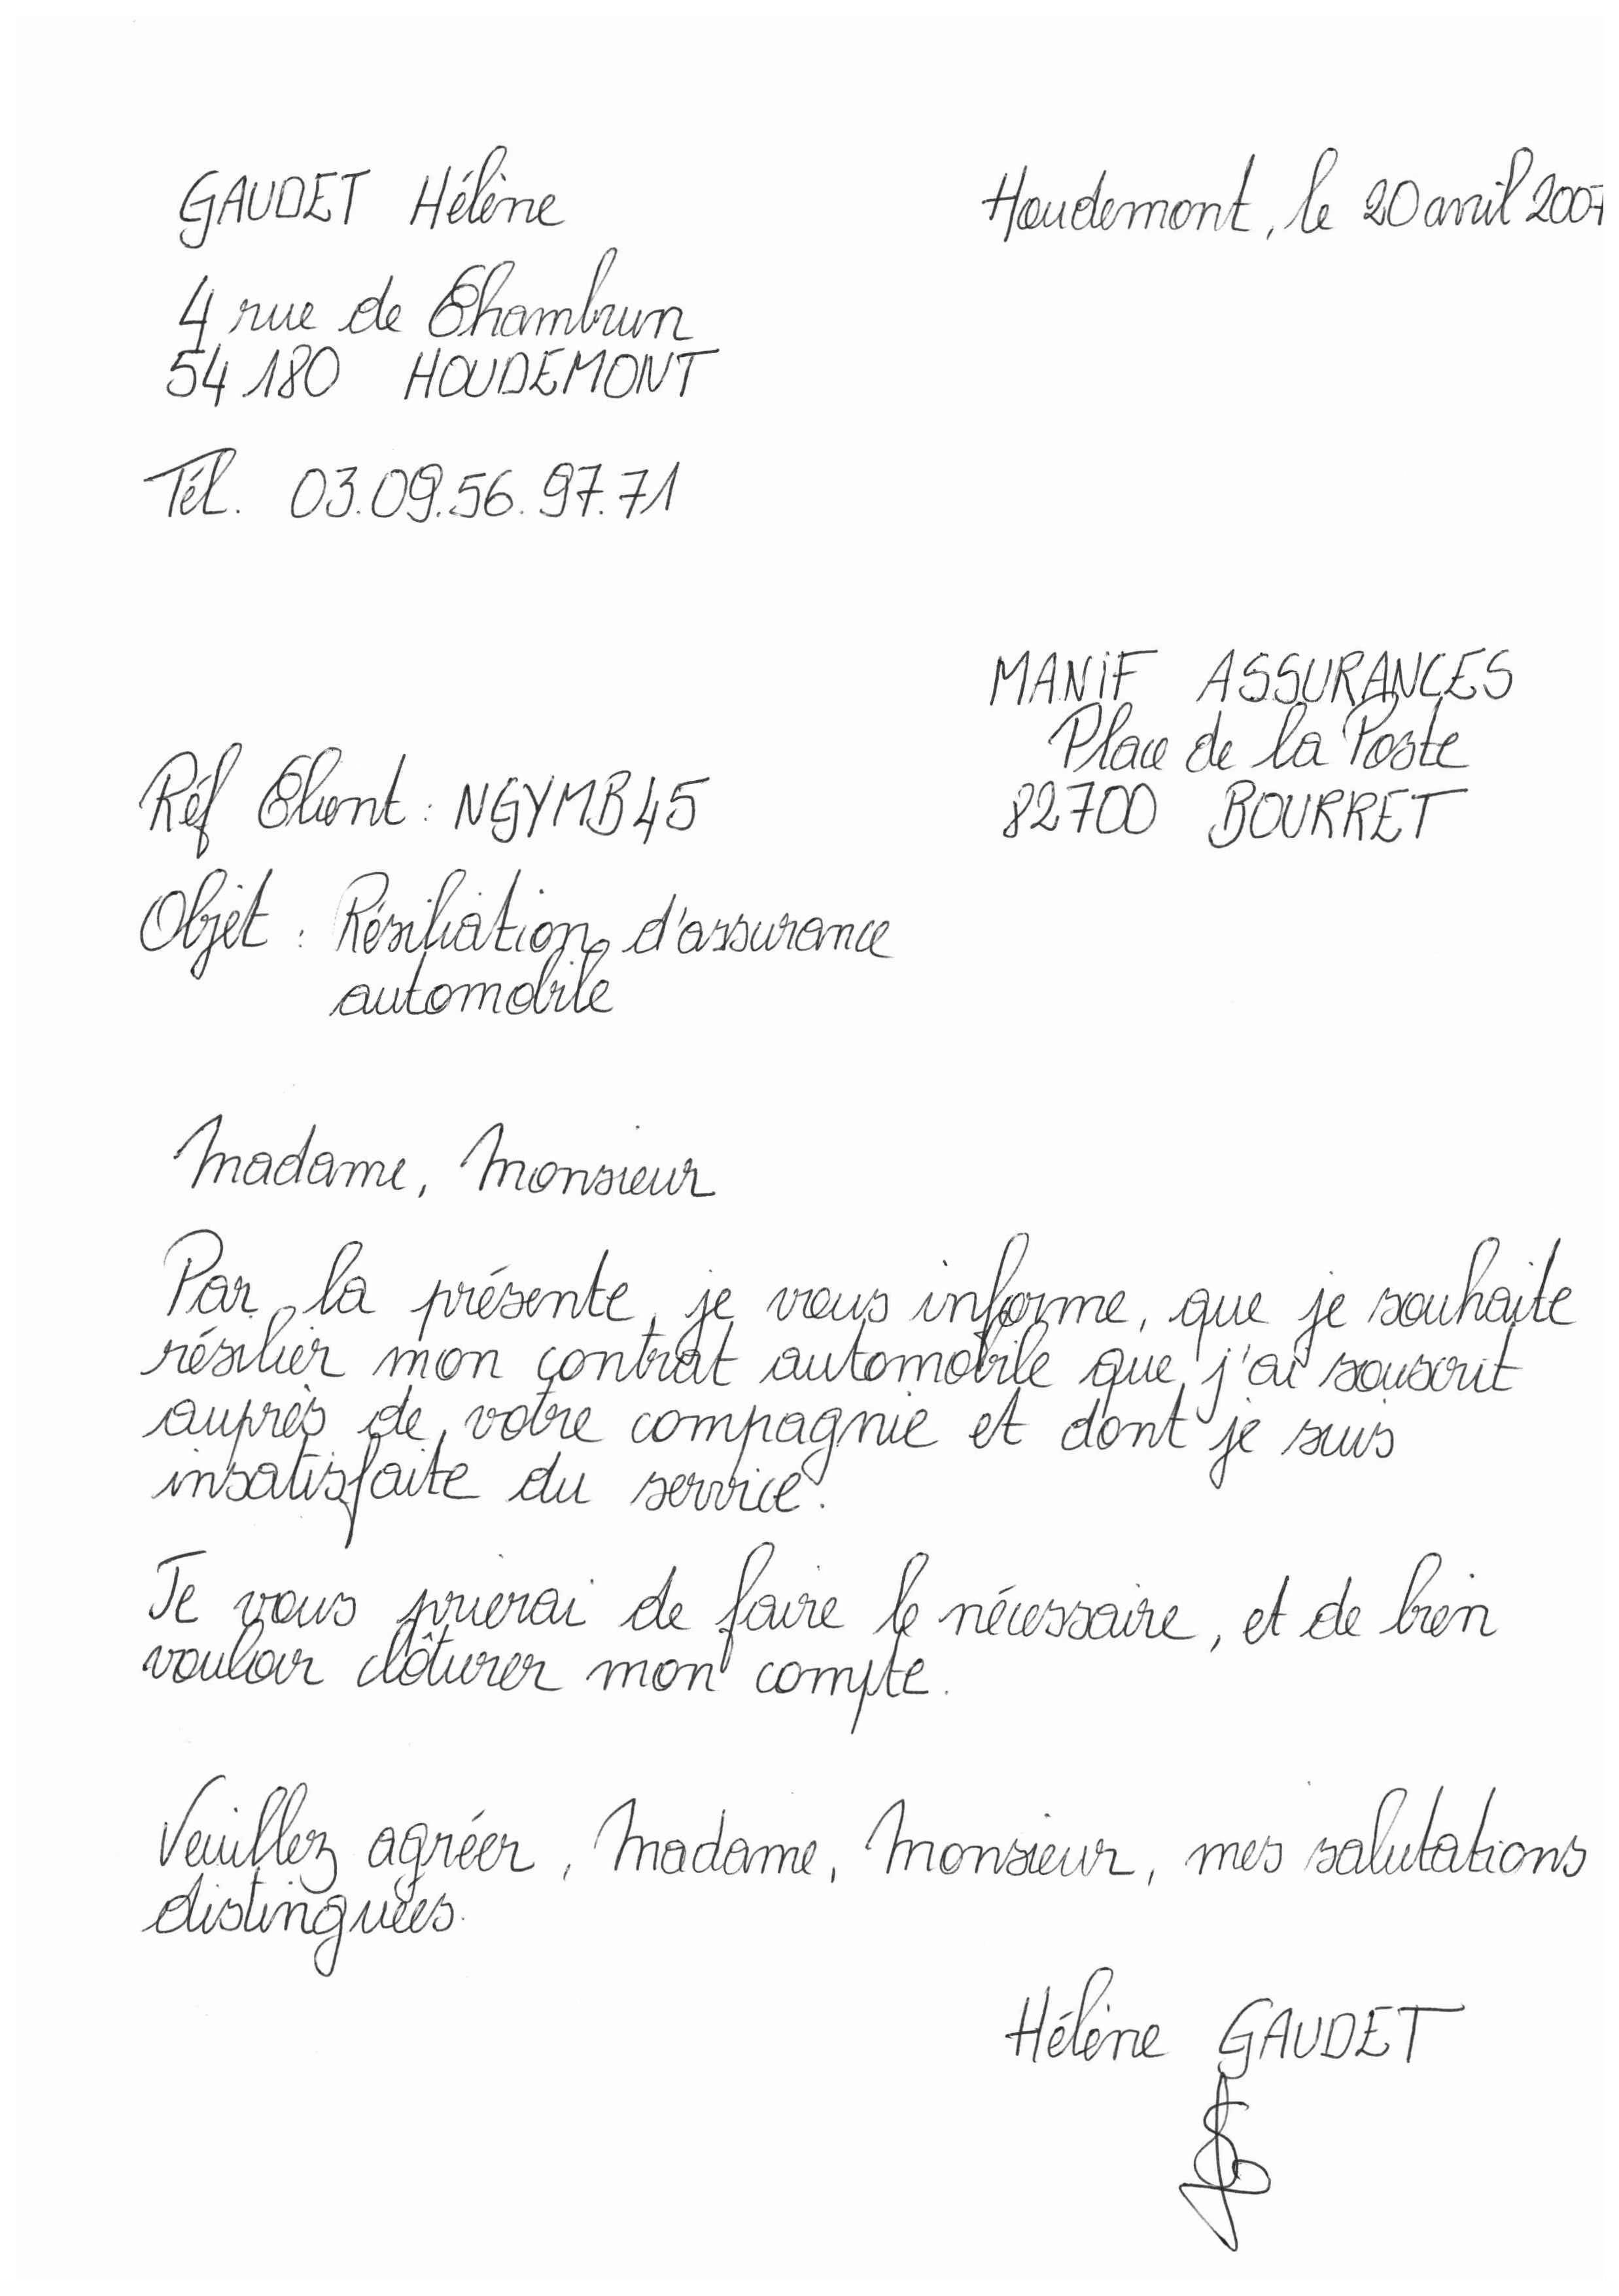 GAUDET Hélène
Houdemont, le 20 avril 2007
4 rue de Chambrun
54180 HOUDEMONT
Tél. 03.09.56.97.71
MANIF ASSURANCES
Place de la Poste
82700 BOURRET
Réf Client : NGYMB45
Objet : Résiliation d'assurance
automobile
Madame, Monsieur
Par la présente, je vous informe, que je souhaite
résilier mon contrat automobile que j'ai souscrit
auprès de votre compagnie et dont je suis
insatisfaite du service.
Je vous prierai de faire le nécessaire, et de bien
vouloir clôturer mon compte.
Veuillez agréer, Madame, Monsieur, mes salutations
distinguées.
Hélène GAUDET